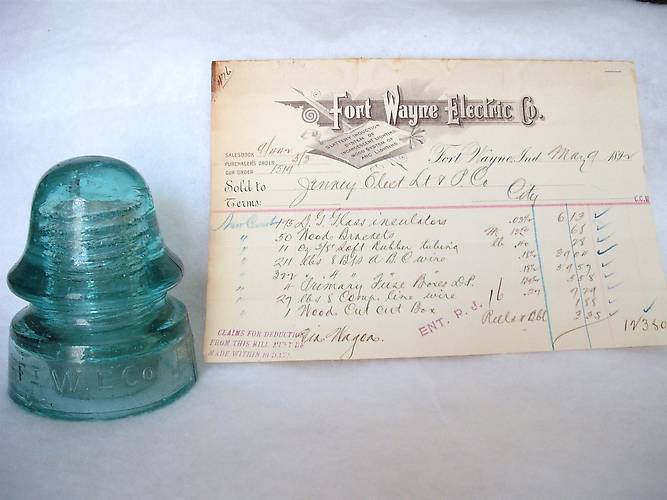 Nº 6
Fort Wayne Electric Co.
SLATTERY INDUCTION
SYSTEM OF
INCANDESCENT LIGHTING
WOOD SYSTEM OF
ARC LIGHTING
SALESBOOK 9/442
PURCHASER'S ORDER 3/3
OUR ORDER 1514
Fort Wayne, Ind. Mar 9 1892
Sold to Jenney Elect Lt & P. Co
Terms: City
C.C.W
175 D. G Glass insulators .03½ 6 13
" 50 Wood Brackets 65
" 11 oz 3/8" Soft Rubber tubing lb .40 28
" 211 lbs 8 B&S A B C wire .18½ 39 04
" 322 " 4 " " .18½ 59 57
" 4 Primary Fuse Boxes D.P. 5 58
" 27 lbs 8 Comp. line wire .27 7 29
" 1 Wood Cut Out Box
Reels & Bbl 3 35
123 80
ENT. P. J.
Via Wagon.
CLAIMS FOR DEDUCTION
FROM THIS BILL MUST BE
MADE WITHIN 10 DAYS.
F. W. E. Co